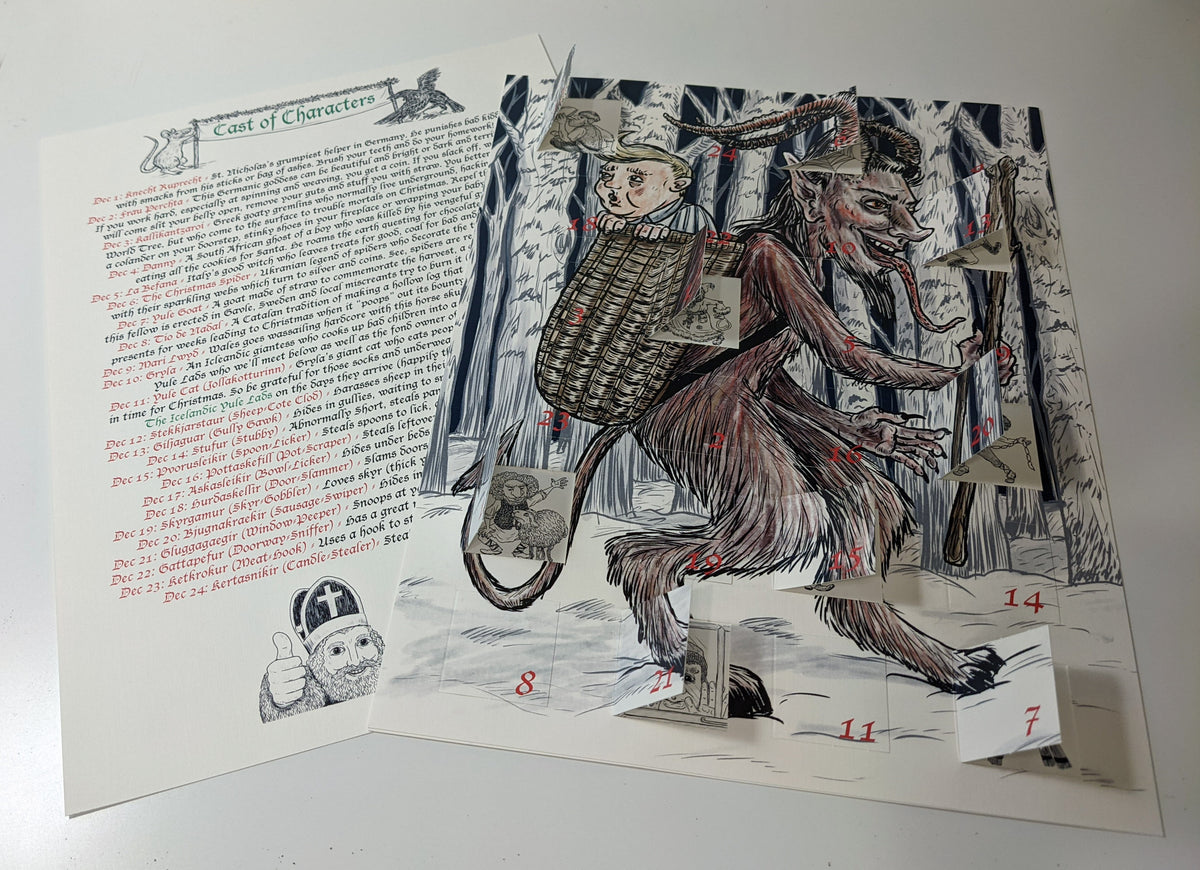 Cast of Characters
Dec 1: Knecht Ruprecht - St. Nicholas's grumpiest helper in Germany. He punishes bad kids
with smacks from his sticks or bag of ashes. Brush your teeth and do your homework
Dec 2: Frau Perchta - This Germanic goddess can be beautiful and bright or dark and terri
If you work hard, especially at spinning and weaving, you get a coin. If you slack off, w
will come slit your belly open, remove your guts and stuff you with straw. You better
Dec 3: Kallikantzaroi - Greek goaty gremlins who normally live underground, hackin
World Tree, but who come to the surface to trouble mortals on Christmas. Repel
a colander on your doorstep, stinky shoes in your fireplace or wrapping your baby
Dec 4: Danny - A South African ghost of a boy who was killed by his vengeful g
eating all the cookies for Santa. He roams the earth questing for chocolat
Dec 5: La Befana - Italy's good witch who leaves treats for good, coal for bad and
Dec 6: The Christmas Spider - Ukranian legend of spiders who decorate the
with their sparkling webs which turn to silver and coins. See, spiders are
Dec 7: Yule Goat - A goat made of straw to commemorate the harvest, a
this fellow is erected in Gavle, Sweden and local miscreants try to burn it
Dec 8: Tio de Nadal - A Catalan tradition of making a hollow log that
presents for weeks leading to Christmas when it "poops" out its bounty
Dec 9: Mari Lwyd - Wales goes wassailing hardcore with this horse sku
Dec 10: Gryla - An Icelandic giantess who cooks up bad children into a
Yule Lads who we'll meet below as well as the fond owner o
Dec 11: Yule Cat (Jollakotturinn) - Gryla's giant cat who eats peop
in time for Christmas. So be grateful for those socks and underwea
The Icelandic Yule Lads on the days they arrive (happily ti
Dec 12: Stekkjarstaur (Sheep-Cote Clod) - Harasses sheep in thei
Dec 13: Giljaguar (Gully Gawk) - Hides in gullies, waiting to s
Dec 14: Stufur (Stubby) - Abnormally short, steals pan
Dec 15: Pvorusleikir (Spoon-Licker) - Steals spoons to lick,
Dec 16: Pottaskefill (Pot-Scraper) - Steals leftove
Dec 17: Askasleikir (Bowl-Licker) - Hides under beds
Dec 18: Hurdaskellir (Door-Slammer) - Slams doors
Dec 19: Skyrgamur (Skyr-Gobbler) - Loves skyr (thick y
Dec 20: Bjugnakraekir (Sausage-Swiper) - Hides in
Dec 21: Gluggagaegir (Window-Peeper) - Snoops at y
Dec 22: Gattapefur (Doorway-Sniffer) - Has a great
Dec 23: Ketkrokur (Meat-Hook) - Uses a hook to st
Dec 24: Kertasnikir (Candle-Stealer) - Stea
24
18
10
3
5
9
23
2
16
20
19
15
14
8
21
11
7